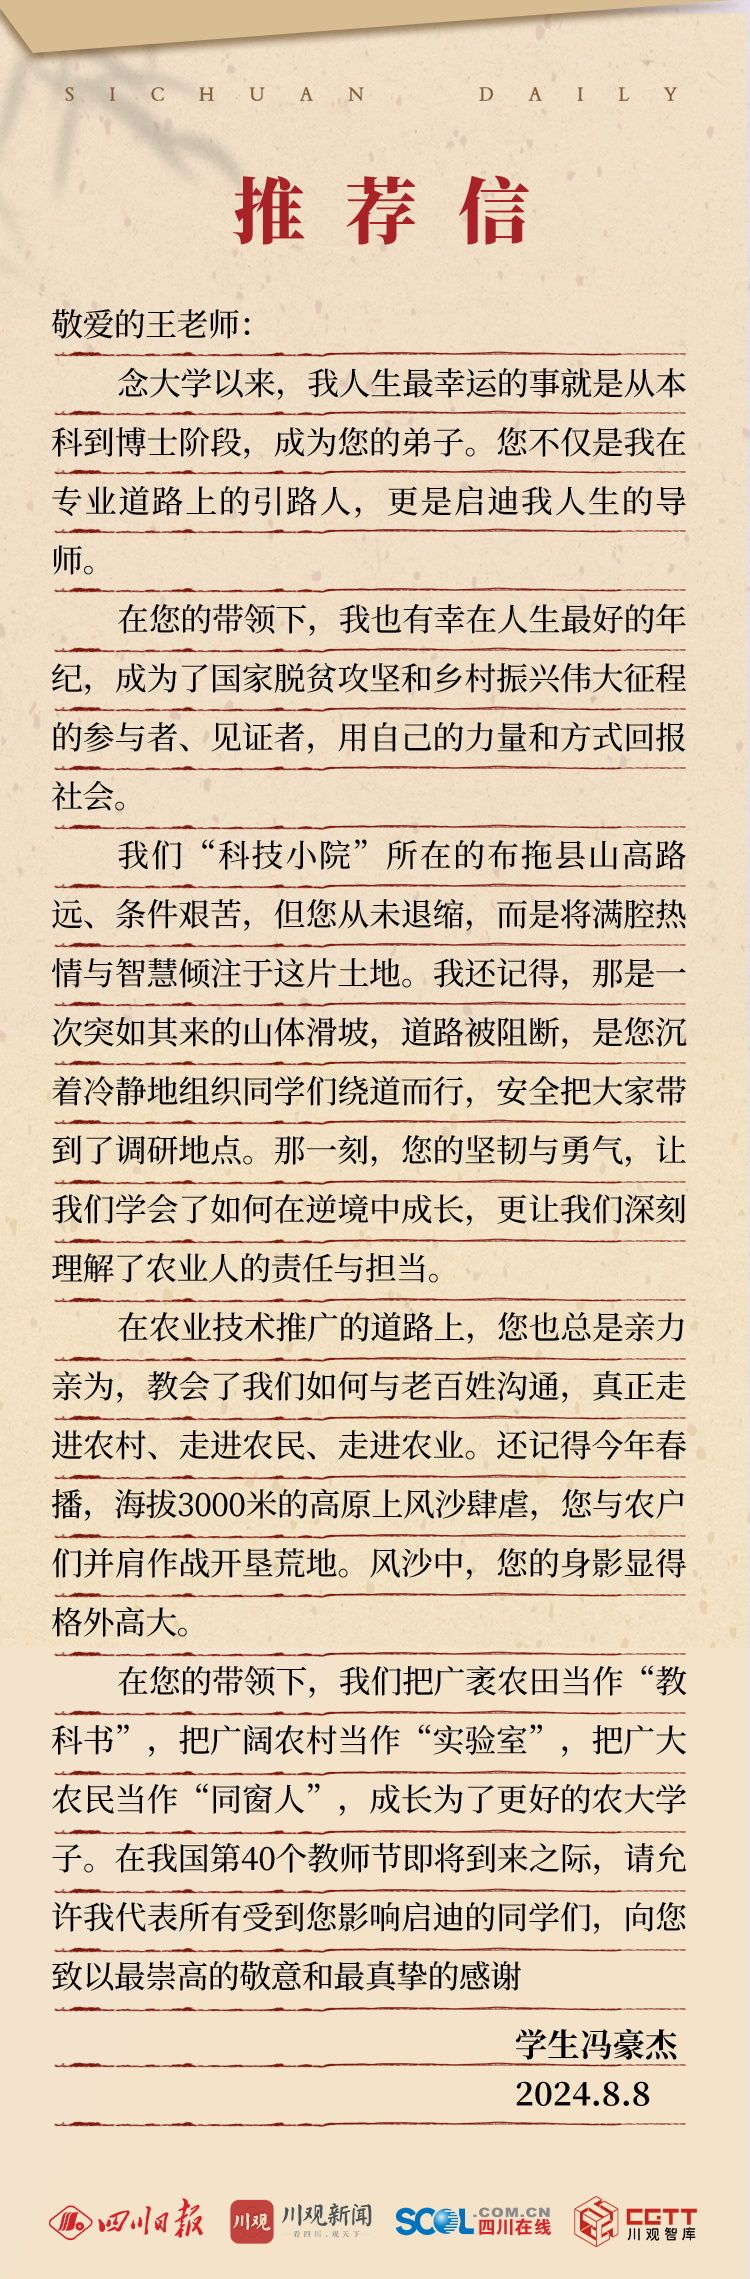 SICHUAN DAILY
推荐信
敬爱的王老师：
念大学以来，我人生最幸运的事就是从本
科到博士阶段，成为您的弟子。您不仅是我在
专业道路上的引路人，更是启迪我人生的导
师。
在您的带领下，我也有幸在人生最好的年
纪，成为了国家脱贫攻坚和乡村振兴伟大征程
的参与者、见证者，用自己的力量和方式回报
社会。
我们“科技小院”所在的布拖县山高路
远、条件艰苦，但您从未退缩，而是将满腔热
情与智慧倾注于这片土地。我还记得，那是一
次突如其来的山体滑坡，道路被阻断，是您沉
着冷静地组织同学们绕道而行，安全把大家带
到了调研地点。那一刻，您的坚韧与勇气，让
我们学会了如何在逆境中成长，更让我们深刻
理解了农业人的责任与担当。
在农业技术推广的道路上，您也总是亲力
亲为，教会了我们如何与老百姓沟通，真正走
进农村、走进农民、走进农业。还记得今年春
播，海拔3000米的高原上风沙肆虐，您与农户
们并肩作战开垦荒地。风沙中，您的身影显得
格外高大。
在您的带领下，我们把广袤农田当作“教
科书”，把广阔农村当作“实验室”，把广大
农民当作“同窗人”，成长为了更好的农大学
子。在我国第40个教师节即将到来之际，请允
许我代表所有受到您影响启迪的同学们，向您
致以最崇高的敬意和最真挚的感谢
学生冯豪杰
2024.8.8
四川日报
川观 川观新闻
看四川，观天下
SCOL .COM.CN
四川在线
CGTT
川观智库